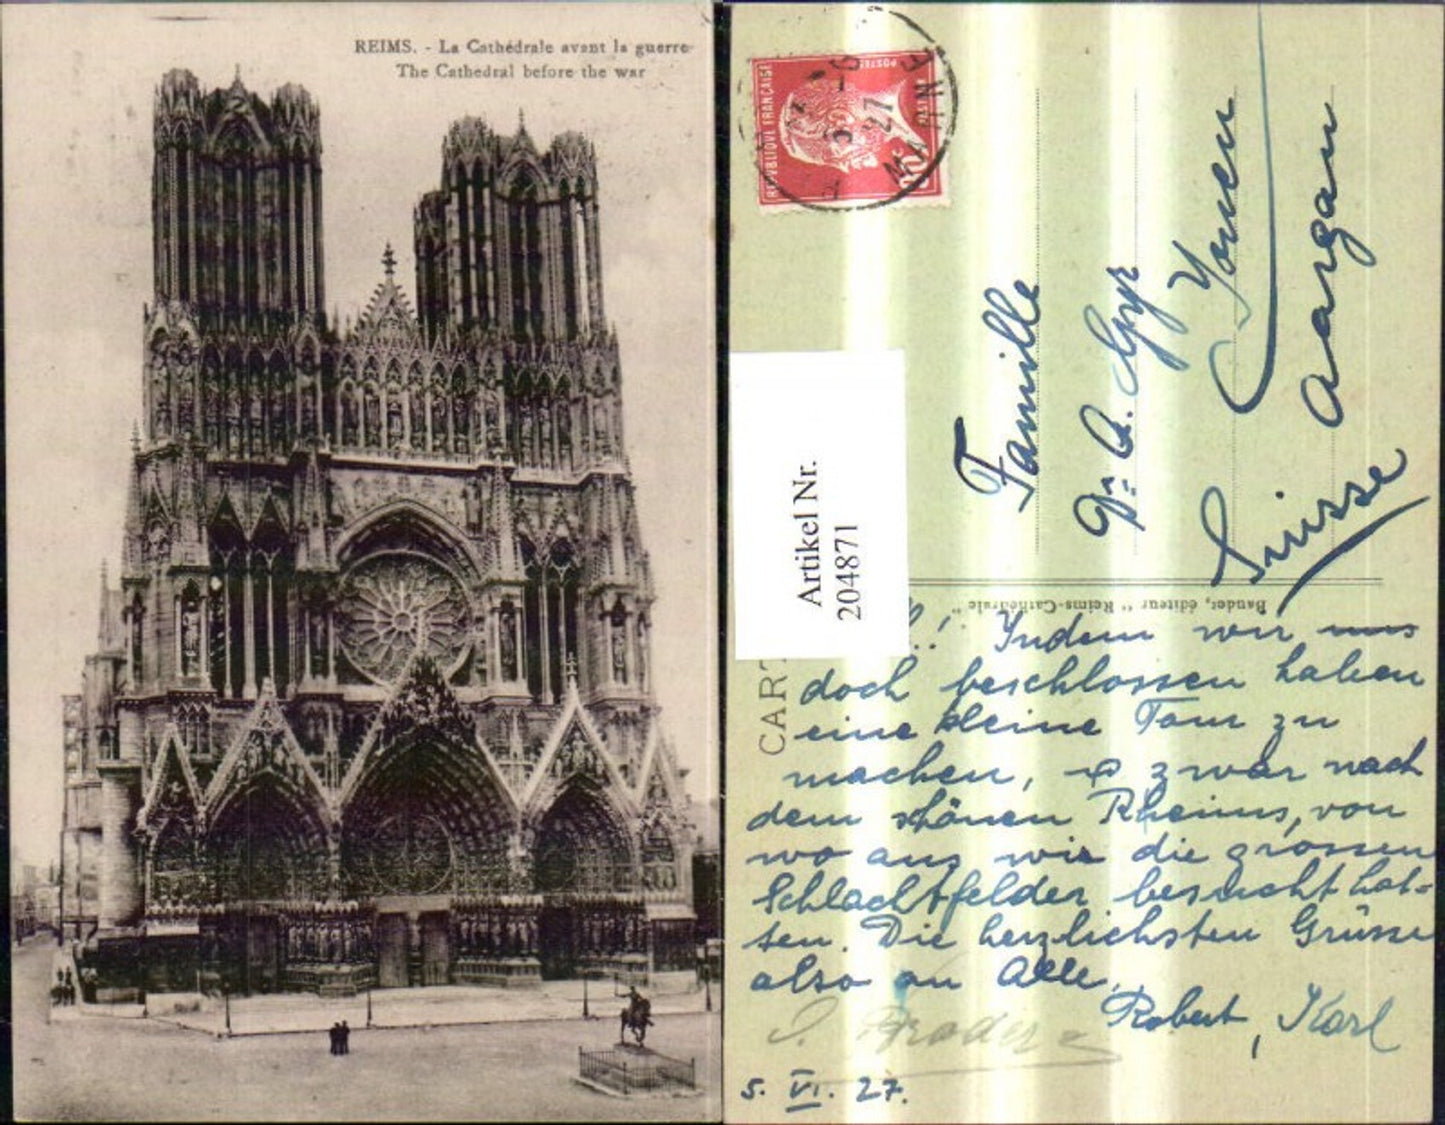 REIMS. - La Cathédrale avant la guerre
The Cathedral before the war
REPUBLIQUE FRANÇAISE
POSTES
5 - 6
27
MARNE
Artikel Nr.
204871
Famille
Dr. A.
Aargau
Suisse
Baudet, éditeur " Reims-Cathédrale "
CART
! Indem wir uns
doch beschlossen haben
eine kleine Tour zu
machen, & zwar nach
dem schönen Rheims, von
wo aus wir die grossen
Schlachtfelder besucht hat=
ten. Die herzlichsten Grüsse
also an Alle.
Robert, Karl
5. VI. 27.